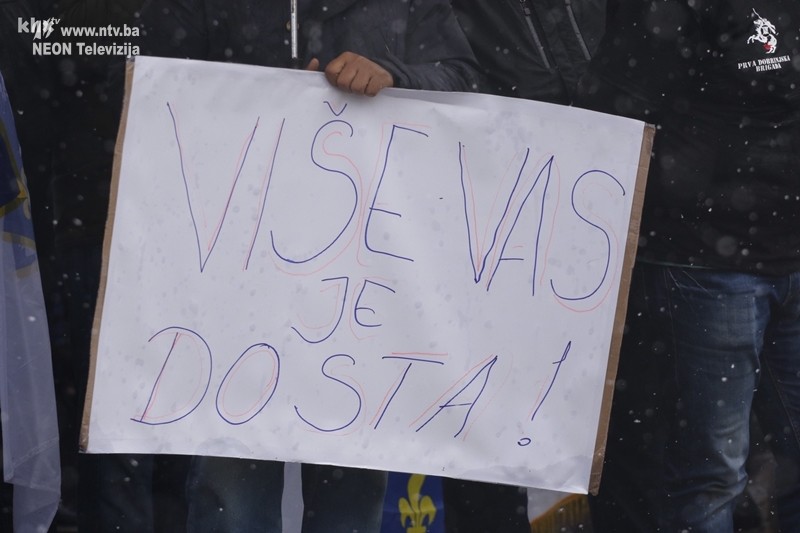 khs tv www.ntv.ba
NEON Televizija
PRVA DOBRINJSKA
BRIGADA
VIŠE VAS
JE
DOSTA!